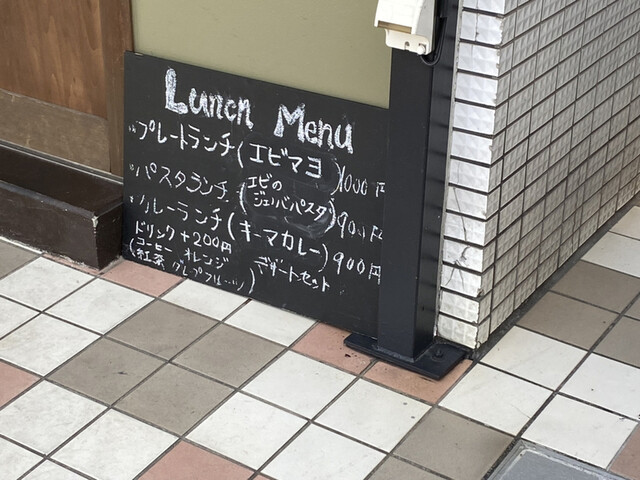 Lunch Menu
プレートランチ(エビマヨ)1000円
パスタランチ(エビのジェノバパスタ)900円
カレーランチ(キーマカレー)900円
ドリンク+200円
(コーヒー オレンジ デザートセット
紅茶 グレープフルーツ)